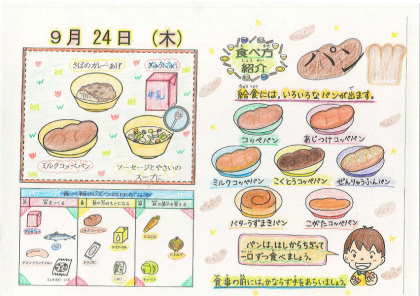 9月 24日 (木)
さばのカレーあげ
ぎゅうにゅう
牛乳
ミルクコッペパン
ソーセージとやさいの
スープに
食べ方
紹介
パン
給食には、いろいろなパンが出ます。
コッペパン
あじつけコッペパン
ミルクコッペパン
こくとうコッペパン
ぜんりゅうふんパン
バターうずまきパン
こがたコッペパン
パンは、はしからちぎって
一口ずつ食べましょう。
食事の前には、かならず手をあらいましょう。